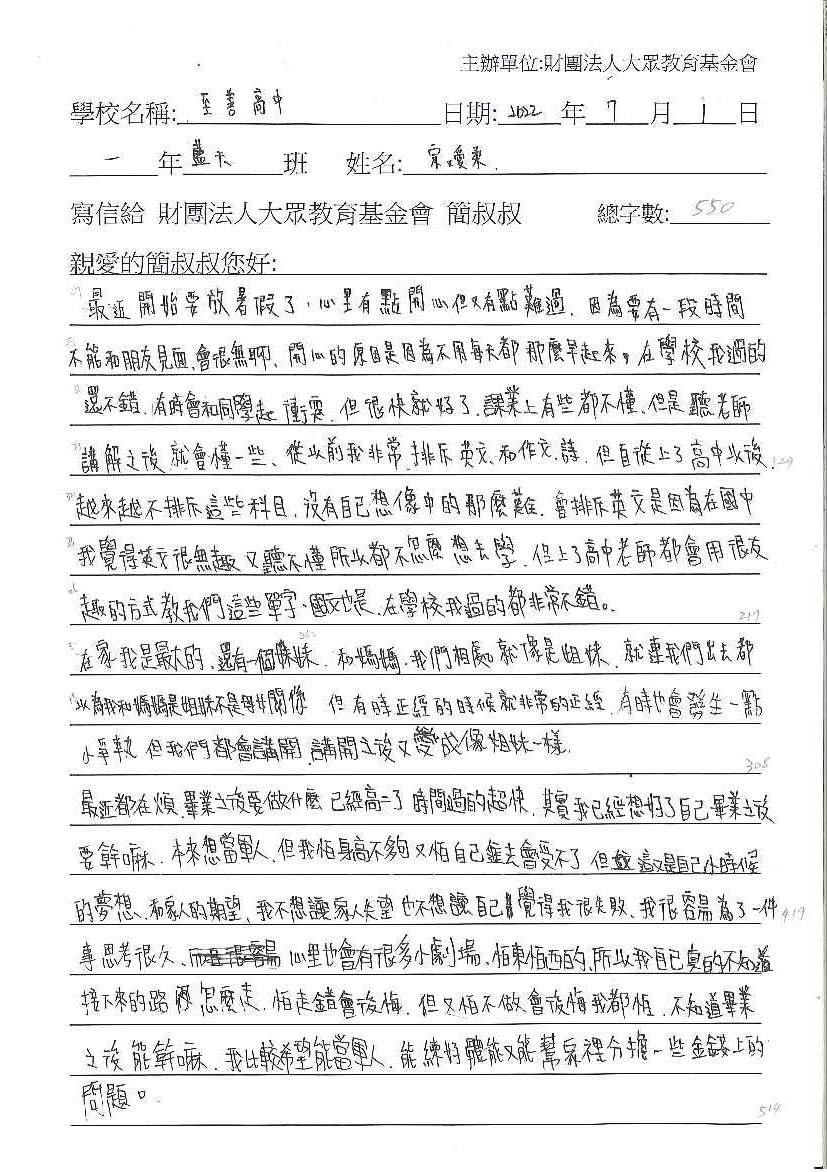 主辦單位:財團法人大眾教育基金會
學校名稱: 至善高中 日期: 2022 年 7 月 1 日
一 年 藍天 班 姓名:
寫信給 財團法人大眾教育基金會 簡叔叔 總字數: 550
親愛的簡叔叔您好:
最近開始要放暑假了,心里有點開心但又有點難過,因為要有一段時間
不能和朋友見面,會很無聊、開心的原因是因為不用每天都那麼早起來。在學校我過的
還不錯,有時會和同學起衝突,但很快就好了,課業上有些都不懂,但是聽老師
講解之後就會懂一些、從以前我非常排斥英文、和作文、詩,但自從上了高中以後,
越來越不排斥這些科目,沒有自己想像中的那麼難,會排斥英文是因為在國中
我覺得英文很無趣又聽不懂所以都不怎麼想去學,但上了高中老師都會用很有
趣的方式教我們這些單字、國文也是,在學校我過的都非常不錯。
217
在家我是最大的,還有一個妹妹,和媽媽,我們相處就像是姐妹,就連我們出去都
以為我和媽媽是姐妹不是母女關係 但有時正經的時候就非常的正經,有時也會發生一點
小爭執 但我們都會講開,講開之後又變成像姐妹一樣.
305
最近都在煩,畢業之後要做什麼 已經高二了 時間過的超快,其實我已經想好了自己畢業之後
要幹嘛,本來想當軍人,但我怕身高不夠又怕自己進去會受不了 但這又是自己小時候
的夢想、和家人的期望,我不想讓家人失望也不想讓自己覺得我很失敗、我很容易為了一件 419
事思考很久、心里也會有很多小劇場,怕東怕西的,所以我自己真的不知道
接下來的路怎麼走,怕走錯會後悔,但又怕不做會後悔我都怕,不知道畢業
之後能幹嘛,我比較希望能當軍人,能練好體能又能幫家裡分擔一些金錢上的
問題。
514